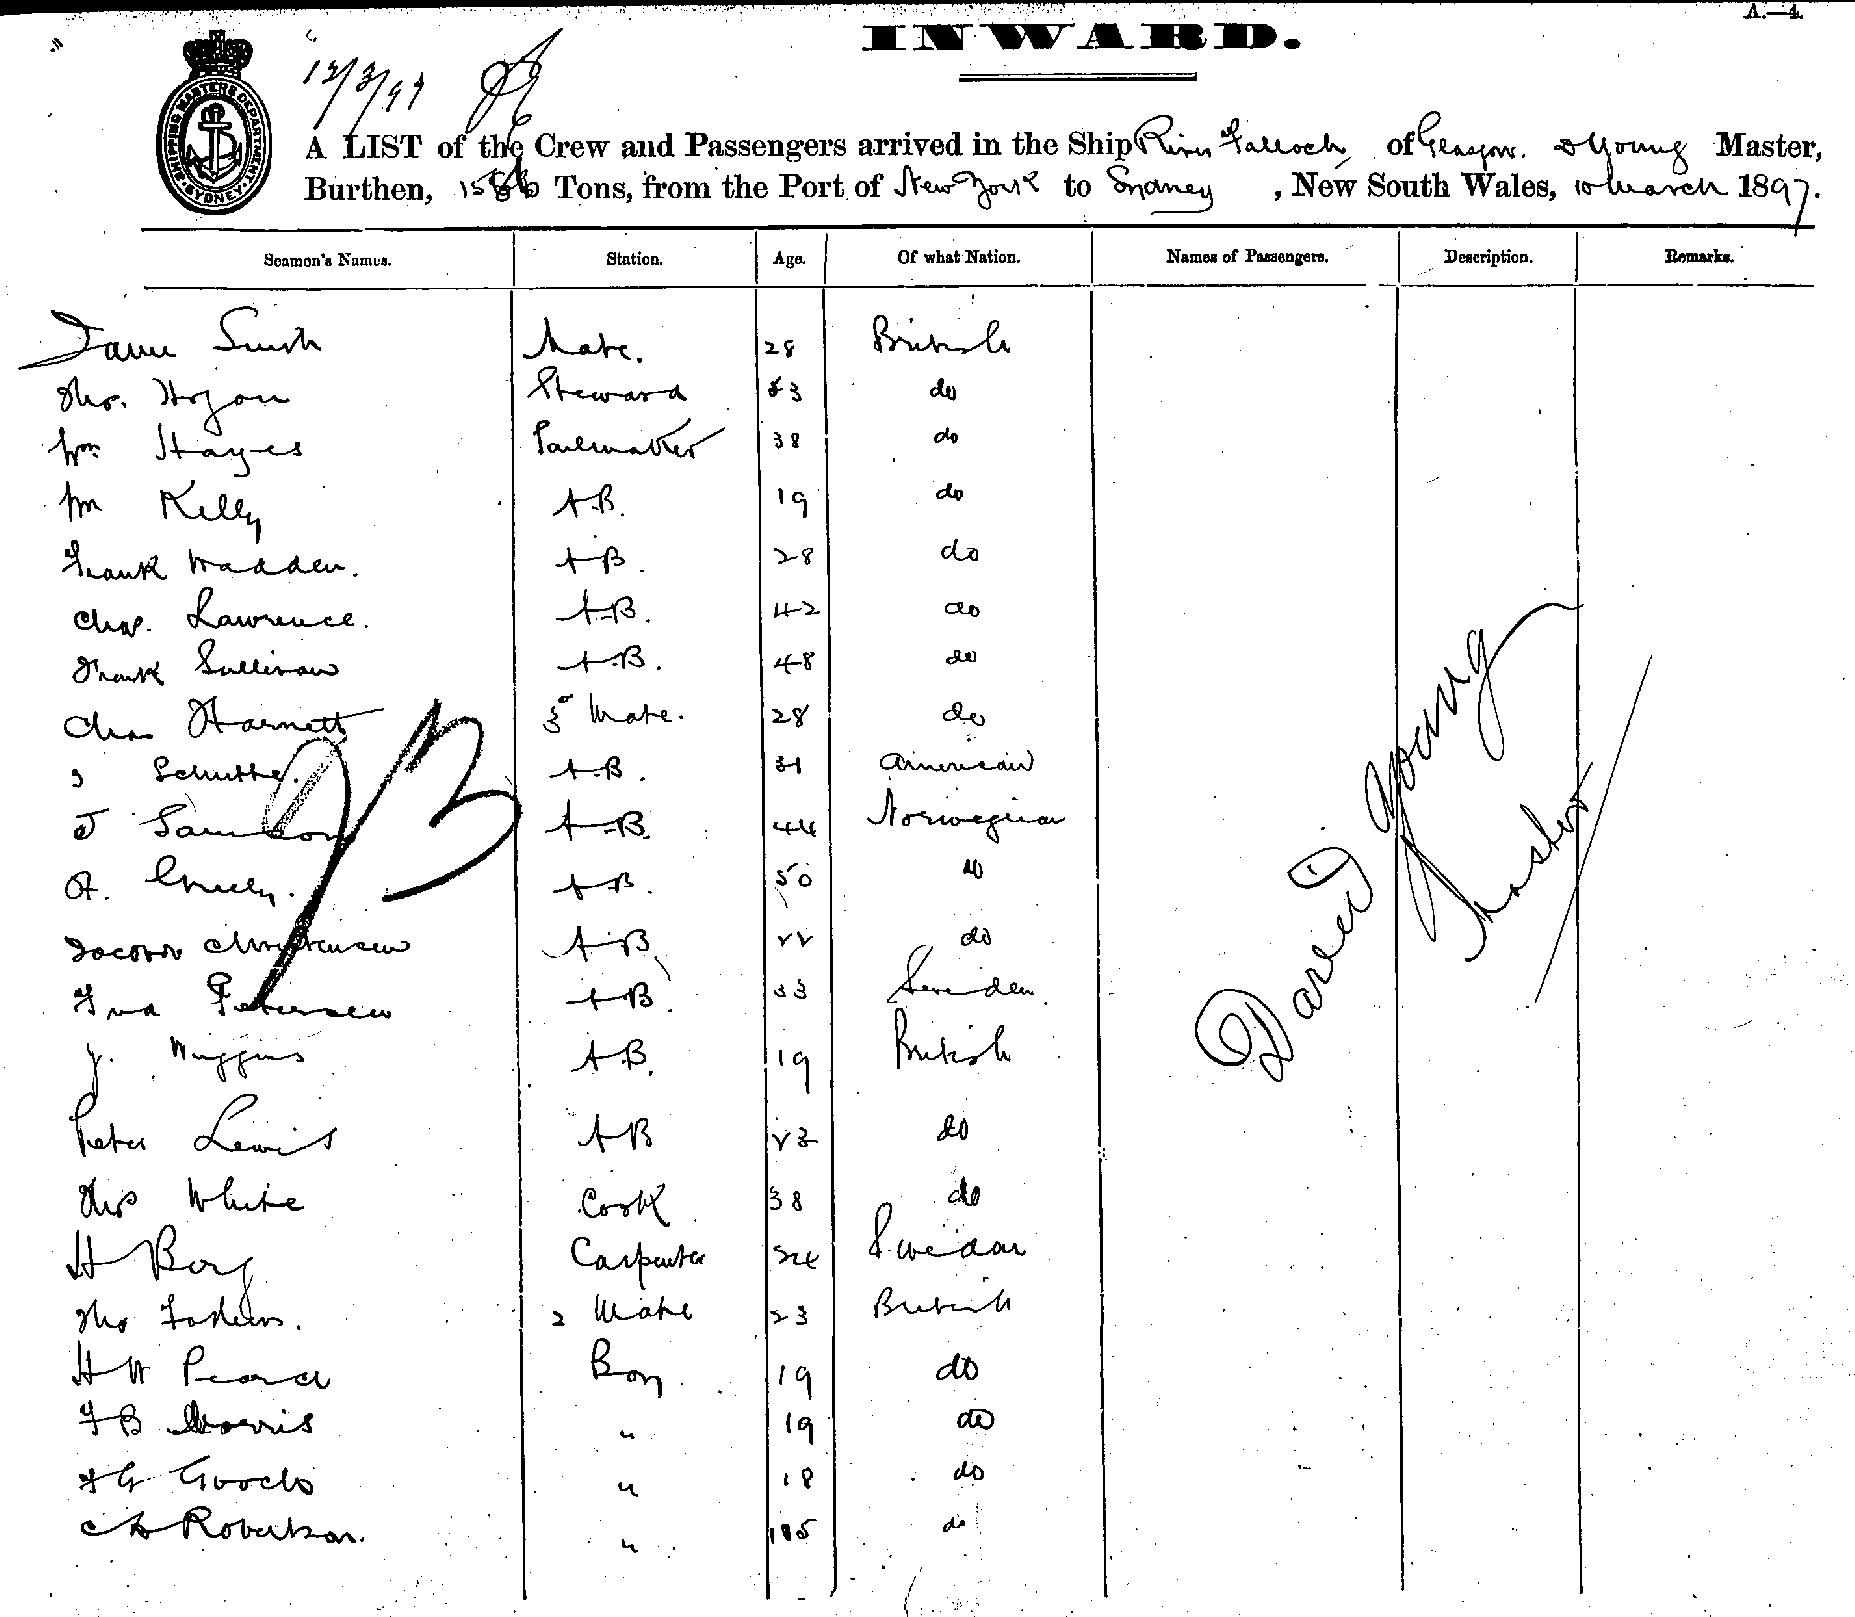 A.—4.
INWARD.
12/3/97
SHIPPING MASTERS DEPARTMENT SYDNEY
A LIST of the Crew and Passengers arrived in the Ship River Falloch of Glasgow. D Young Master,
Burthen, Tons, from the Port of New York to Sydney, New South Wales, 10 March 1897.
Seamen's Names. Station. Age. Of what Nation. Names of Passengers. Description. Remarks.
Smith Mate. 28 British
Thos. Steward do
Wm Hayes Sailmaker 38 do
Wm Kelly A.B. 19 do
Frank Madden. A.B. 28 do
Chas. Lawrence. A.B. 42 do
Frank Sullivan A.B. 48 do
Chas Harnett 3 Mate. 28 do
A.B. 31 American
J A.B. 44 Norwegian
A.B. 50 do
Christensen A.B. 22 do
Petersen A.B. 33 Sweden
J. Huggins A.B. 19 British
Peter Lewis A B 23 do
Thos White Cook 38 do
H Borg Carpenter Swedan
Thos 2 Mate 23 British
H W Pearce Boy 19 do
F B Morris " 19 do
F G " 18 do
Robertson. " do
David Young
Master